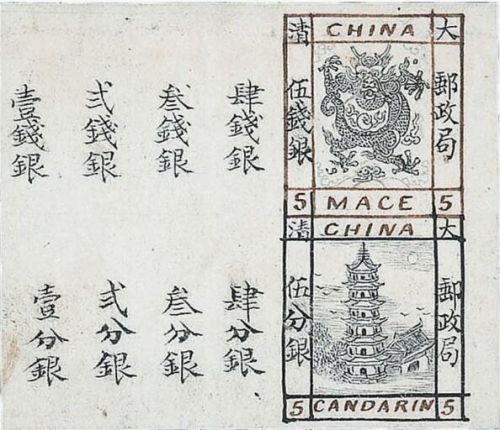 清 CHINA 大
郵政局
伍錢銀
5 MACE 5
肆錢銀
叁錢銀
弍錢銀
壹錢銀
清 CHINA 大
郵政局
伍分銀
5 CANDARIN 5
肆分銀
叁分銀
弍分銀
壹分銀